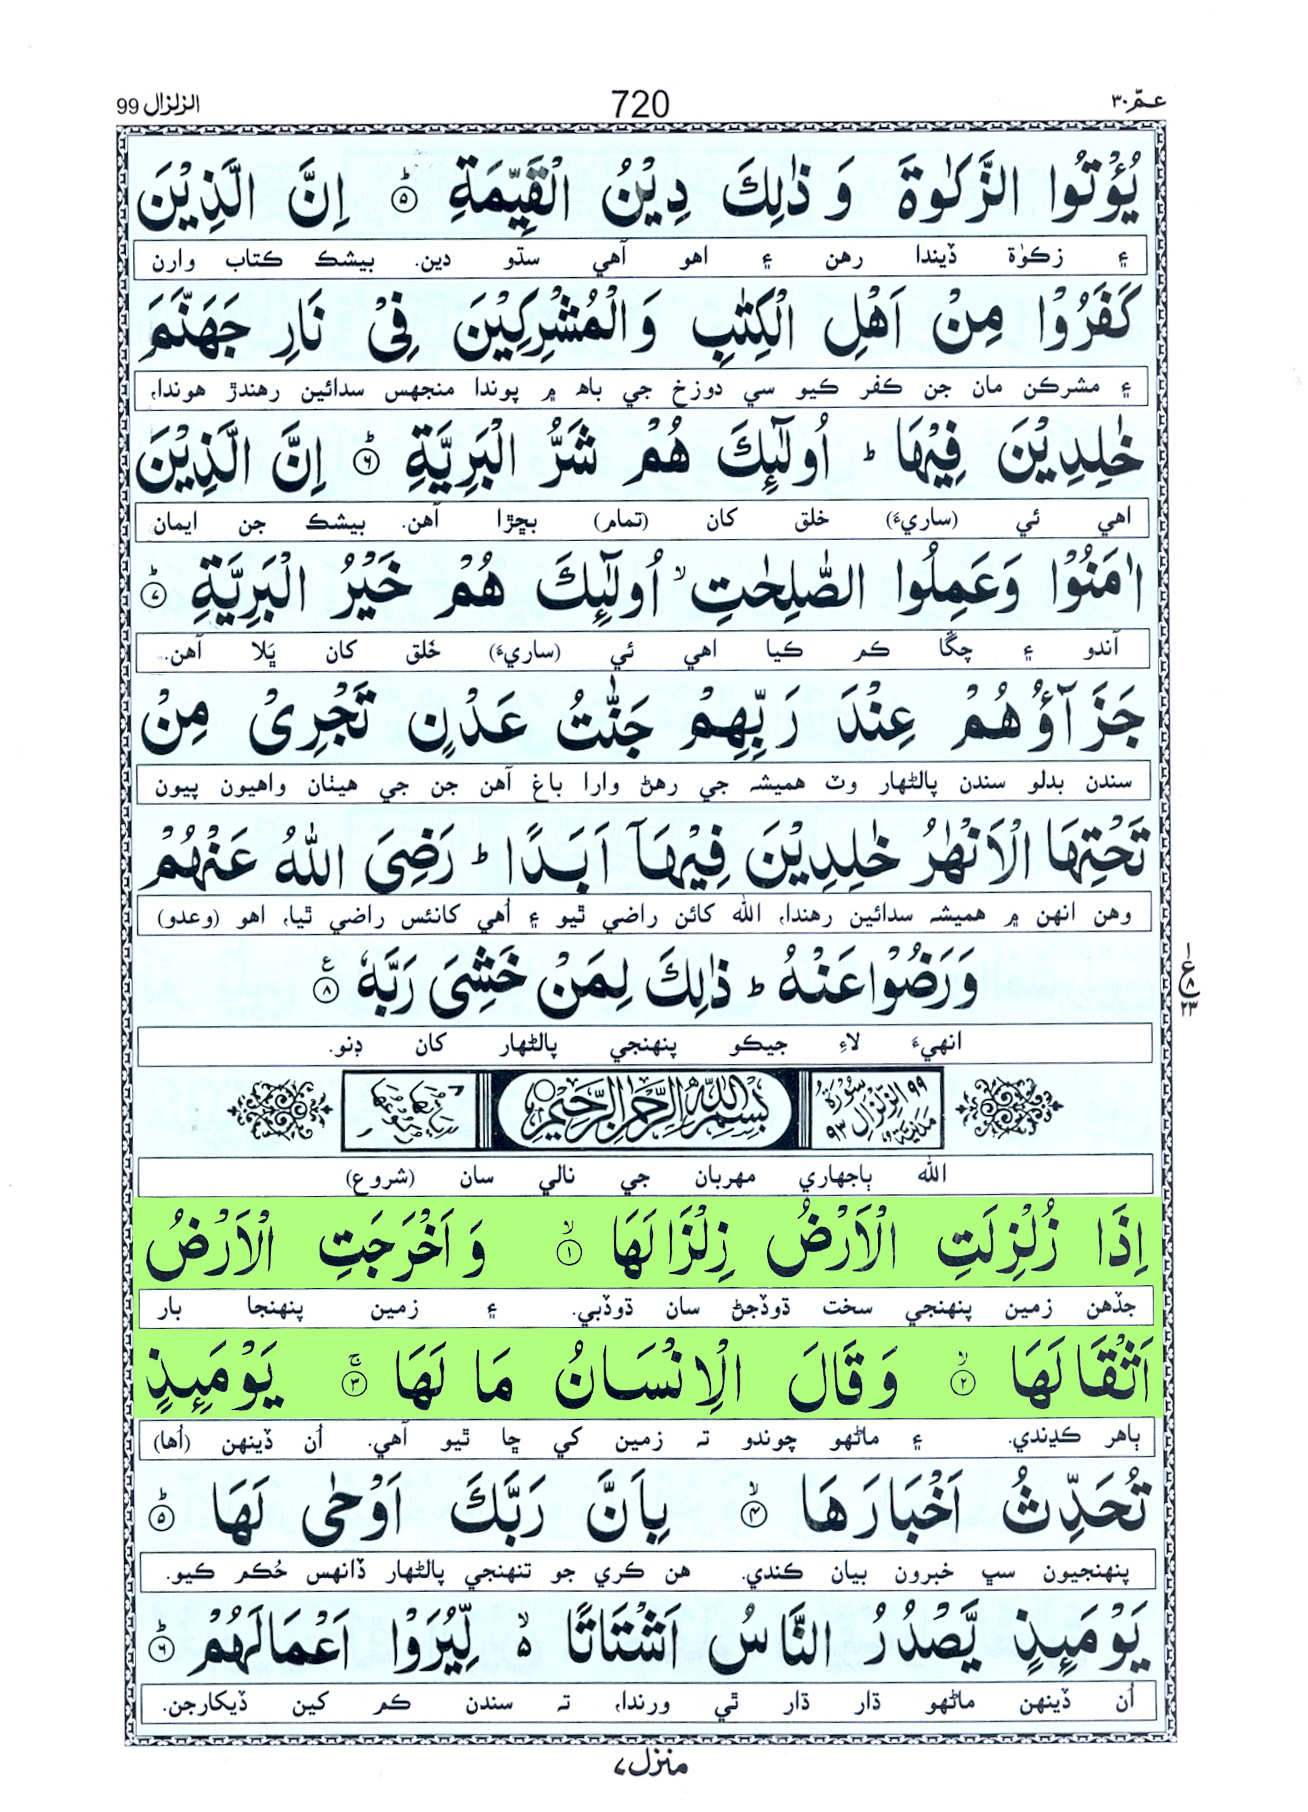 الزلزال 99
720
عـمّ ٣٠
يُؤْتُوا الزَّكٰوةَ وَ ذٰلِكَ دِيْنُ الْقَيِّمَةِ ؕ۝٥ اِنَّ الَّذِيْنَ
۽ زڪوٰة ڏيندا رهن ۽ اهو آهي سڌو دين. بيشڪ ڪتاب وارن
كَفَرُوْا مِنْ اَهْلِ الْكِتٰبِ وَالْمُشْرِكِيْنَ فِيْ نَارِ جَهَنَّمَ
۽ مشرڪن مان جن ڪفر ڪيو سي دوزخ جي باهه ۾ پوندا منجهس سدائين رهندڙ هوندا،
خٰلِدِيْنَ فِيْهَا ؕ اُولٰٓئِكَ هُمْ شَرُّ الْبَرِيَّةِ ؕ۝٦ اِنَّ الَّذِيْنَ
اهي ئي (ساريءَ) خلق کان (تمام) بڇڙا آهن. بيشڪ جن ايمان
اٰمَنُوْا وَعَمِلُوا الصّٰلِحٰتِ ۙ اُولٰٓئِكَ هُمْ خَيْرُ الْبَرِيَّةِ ؕ۝٧
آندو ۽ چڱا ڪم ڪيا اهي ئي (ساريءَ) خَلق کان ڀَلا آهن.
جَزَآؤُهُمْ عِنْدَ رَبِّهِمْ جَنّٰتُ عَدْنٍ تَجْرِيْ مِنْ
سندن بدلو سندن پالڻهار وٽ هميشہ جي رهڻ وارا باغ آهن جن جي هيٺان واهيون پيون
تَحْتِهَا الْاَنْهٰرُ خٰلِدِيْنَ فِيْهَآ اَبَدًا ؕ رَضِيَ اللهُ عَنْهُمْ
وهن انهن ۾ هميشہ سدائين رهندا، الله کائن راضي ٿيو ۽ اُهي کانئس راضي ٿيا، اهو (وعدو)
وَرَضُوْا عَنْهُ ؕ ذٰلِكَ لِمَنْ خَشِيَ رَبَّهٗ ۝٨ ع
ع ١ ٨ ٢٣
انهيءَ لاءِ جيڪو پنهنجي پالڻهار کان ڊنو.
٩٩ سُوْرَةُ الزِّلْزَالِ مَدَنِيَّةٌ ٩٣ بِسْمِ اللهِ الرَّحْمٰنِ الرَّحِيْمِ اٰيَاتُهَا ٨ رُكُوْعُهَا
الله ٻاجهاري مهربان جي نالي سان (شروع)
اِذَا زُلْزِلَتِ الْاَرْضُ زِلْزَالَهَا ۙ۝١ وَ اَخْرَجَتِ الْاَرْضُ
جڏهن زمين پنهنجي سخت ڌوڏجڻ سان ڌوڏبي. ۽ زمين پنهنجا بار
اَثْقَالَهَا ۙ۝٢ وَقَالَ الْاِنْسَانُ مَا لَهَا ۚ۝٣ يَوْمَئِذٍ
ٻاهر ڪڍندي. ۽ ماڻهو چوندو تہ زمين کي ڇا ٿيو آهي. اُن ڏينهن (اُها)
تُحَدِّثُ اَخْبَارَهَا ۙ۝٤ بِاَنَّ رَبَّكَ اَوْحٰى لَهَا ؕ۝٥
پنهنجيون سڀ خبرون بيان ڪندي. هن ڪري جو تنهنجي پالڻهار ڏانهس حُڪم ڪيو.
يَوْمَئِذٍ يَّصْدُرُ النَّاسُ اَشْتَاتًا ۙ۵ لِّيُرَوْا اَعْمَالَهُمْ ؕ۝٦
اُن ڏينهن ماڻهو ڌار ڌار ٿي ورندا، تہ سندن ڪم کين ڏيکارجن.
منزل ٧